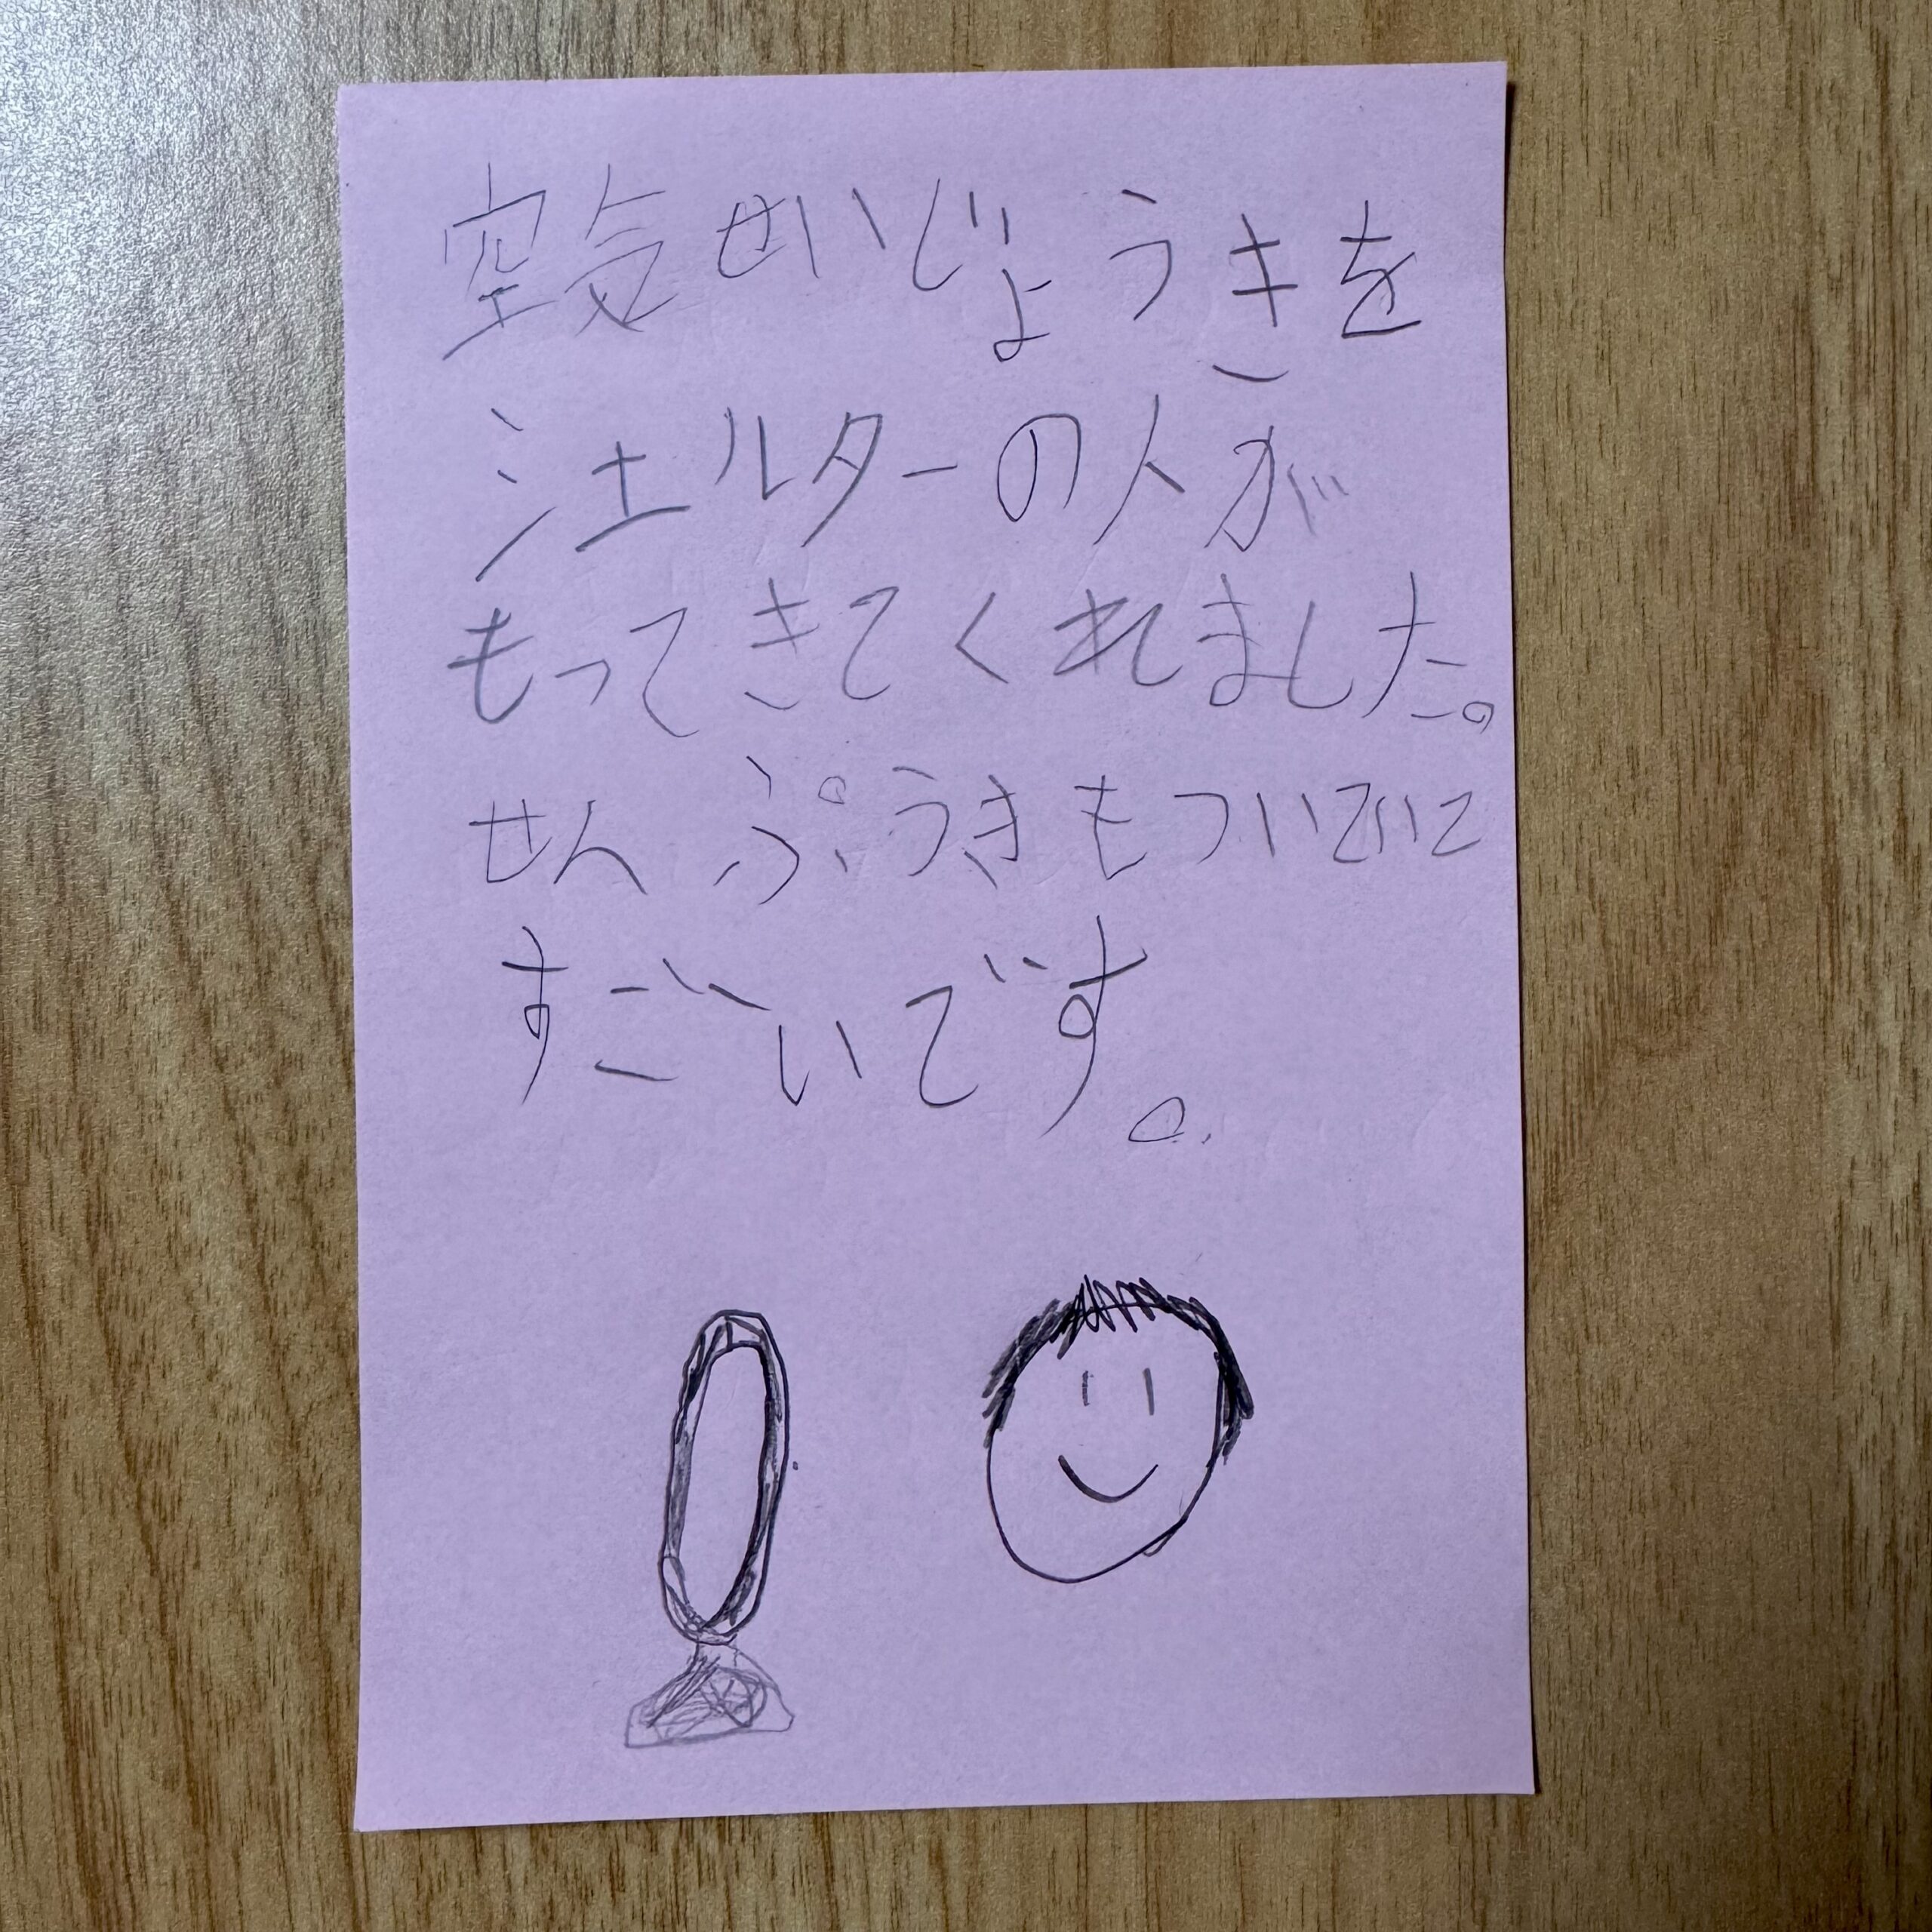 空気せいじょうきを
シェルターの人が
もってきてくれました。
せんぷうきもついていて
すごいです。